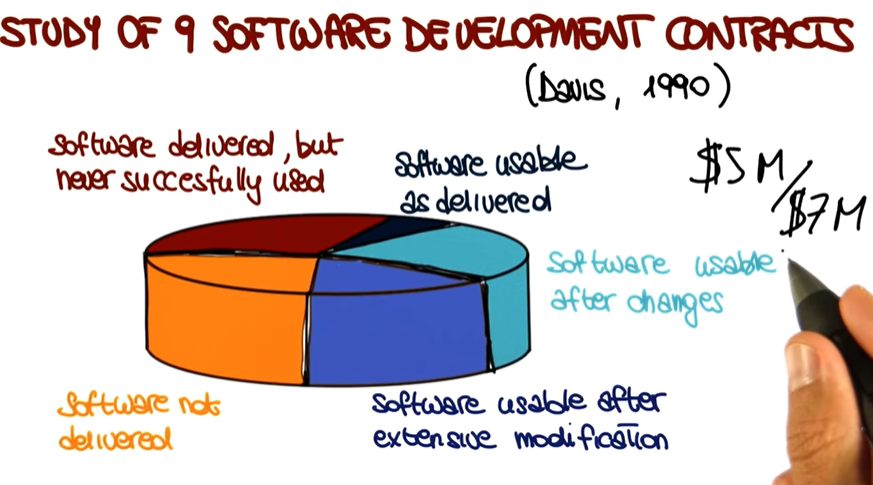 STUDY OF 9 SOFTWARE DEVELOPMENT CONTRACTS
(Davis, 1990)
Software delivered, but
never succesfully used
Software usable
as delivered
$5M/
$7M
Software usable
after changes
Software not
delivered
Software usable after
extensive modification